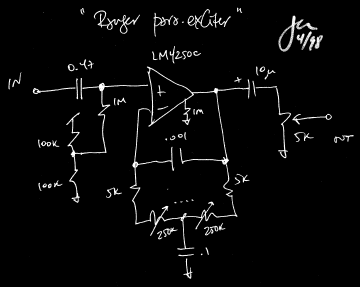 "Ranger para. exciter"
4/98
LM4250C
0.47
10µ
IN
+
+
-
1M
1M
100K
.001
5K
OUT
100K
5K
5K
....
250K
250K
.1